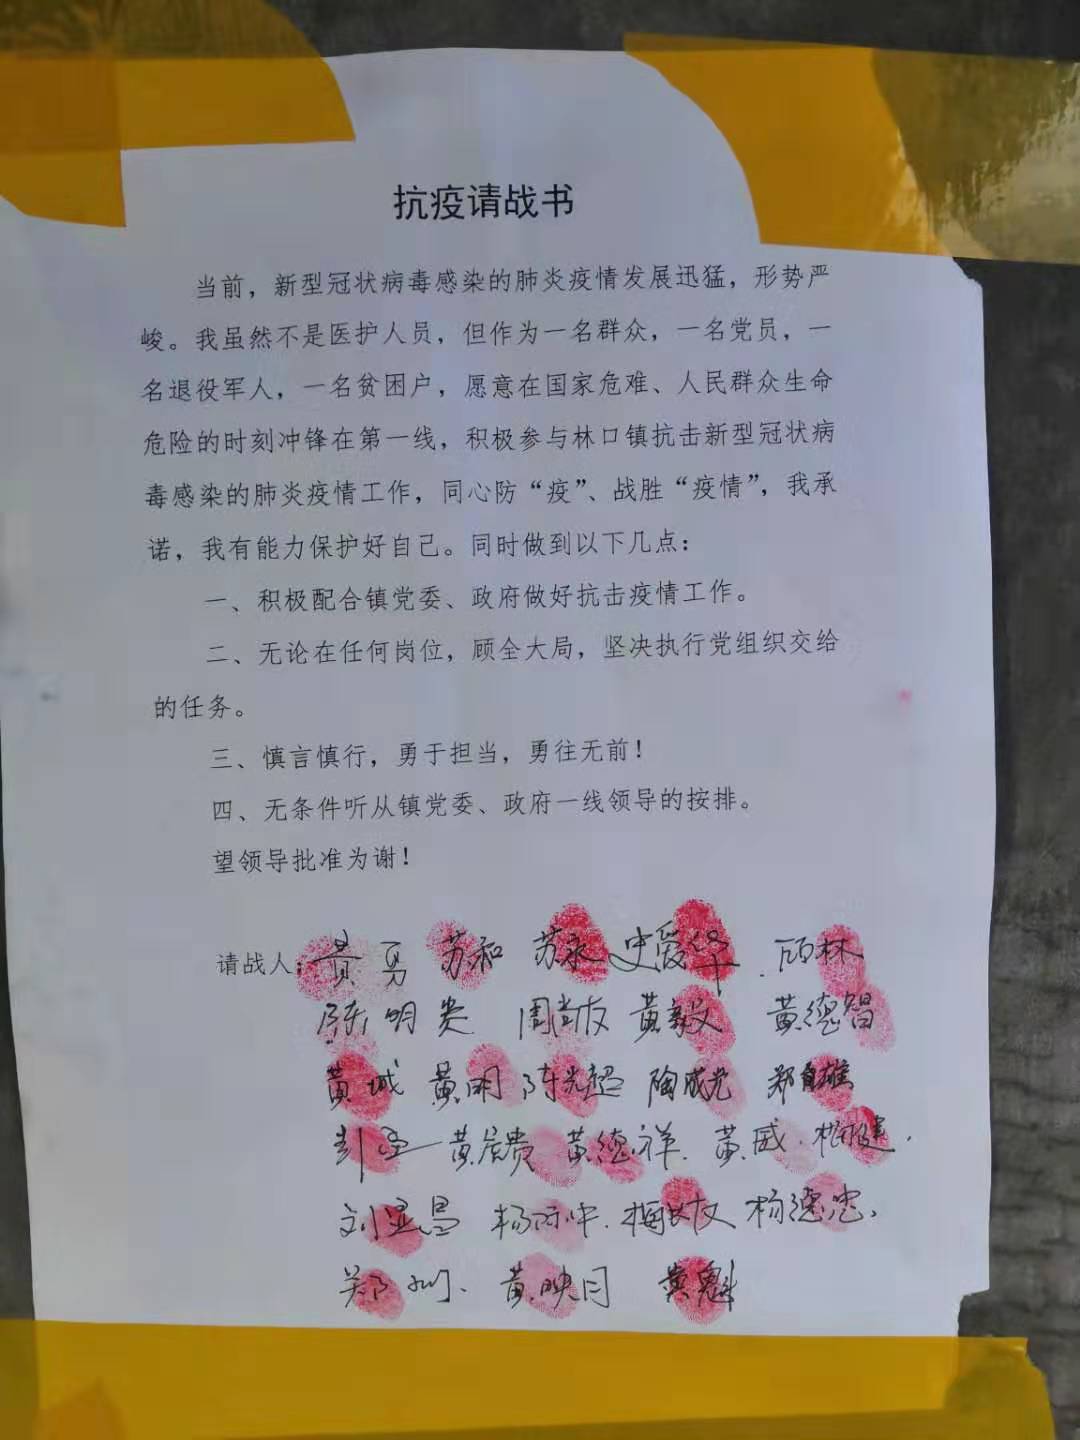 抗疫请战书
当前，新型冠状病毒感染的肺炎疫情发展迅猛，形势严
峻。我虽然不是医护人员，但作为一名群众，一名党员，一
名退役军人，一名贫困户，愿意在国家危难、人民群众生命
危险的时刻冲锋在第一线，积极参与林口镇抗击新型冠状病
毒感染的肺炎疫情工作，同心防“疫”、战胜“疫情”，我承
诺，我有能力保护好自己。同时做到以下几点：
一、积极配合镇党委、政府做好抗击疫情工作。
二、无论在任何岗位，顾全大局，坚决执行党组织交给
的任务。
三、慎言慎行，勇于担当，勇往无前！
四、无条件听从镇党委、政府一线领导的按排。
望领导批准为谢！
请战人：黄勇 苏和 苏永 史爱华 顾林
陈明贵 周尚友 黄毅 黄德智
黄城 黄明 陈光超 陶成党 郑自雄
黄德祥 黄威
刘显昌 梅长友 杨德忠
郑州 黄映月 黄魁